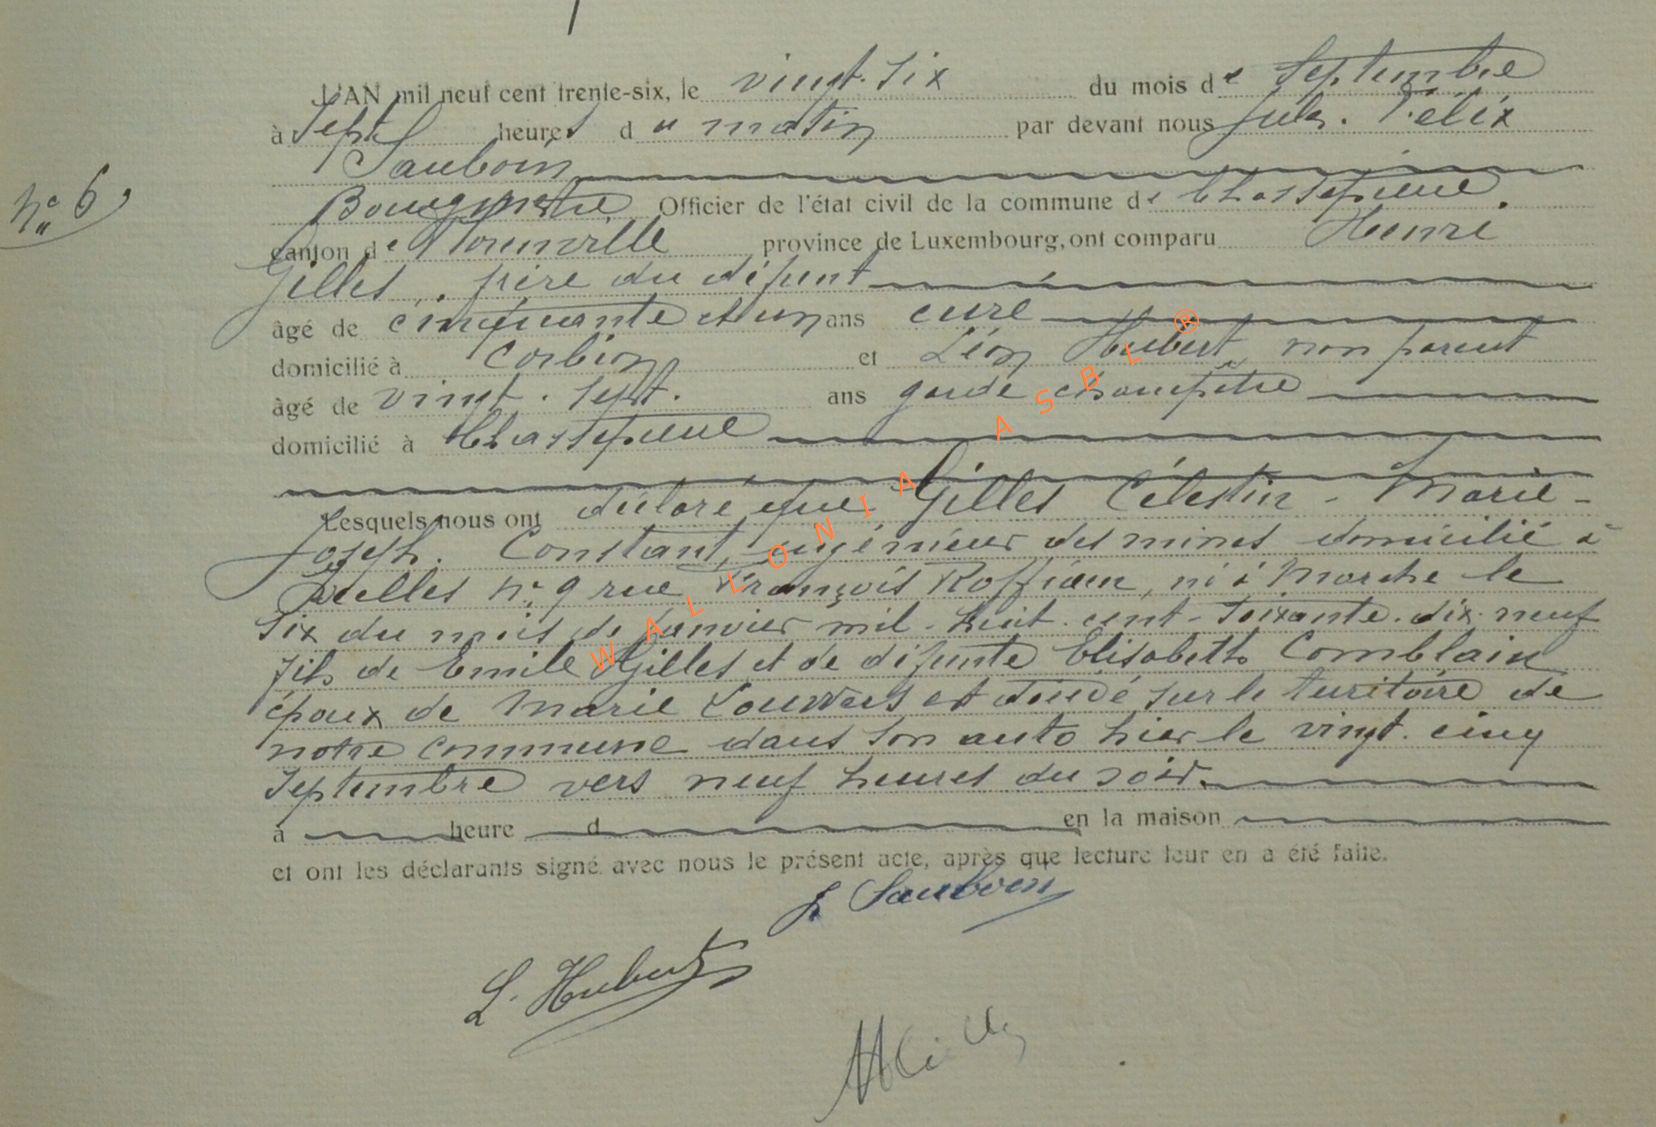 L'AN mil neuf cent trente-six, le vingt-six du mois de Septembre
à Sept heures du matin par devant nous Jules. Félix
Sauboin
N° 6,
Bourgmestre Officier de l'état civil de la commune de Chassepierre.
canton de Florenville province de Luxembourg, ont comparu Henri
Gilles, frère du défunt
âgé de cinquante et un ans curé
domicilié à Corbion et Léon Hubert, non parent
âgé de vingt-sept. ans garde champêtre
domicilié à Chassepierre
Lesquels nous ont déclaré que Gilles Célestin-Marie-
Joseph. Constant, ingénieur des mines domicilié à
Ixelles N° 9 rue François Roffiaen, né à Marche le
six du mois de janvier mil-huit-cent-soixante-dix-neuf
fils de Emile Gilles et de défunte Elisabeth Comblain
époux de Marie Louwers est décédé sur le territoire de
notre commune dans son auto hier le vingt-cinq
septembre vers neuf heures du soir.
à heure d en la maison
et ont les déclarants signé avec nous le présent acte, après que lecture leur en a été faite.
J Sauboin
L. Hubert
WALLONIA ASBL ®